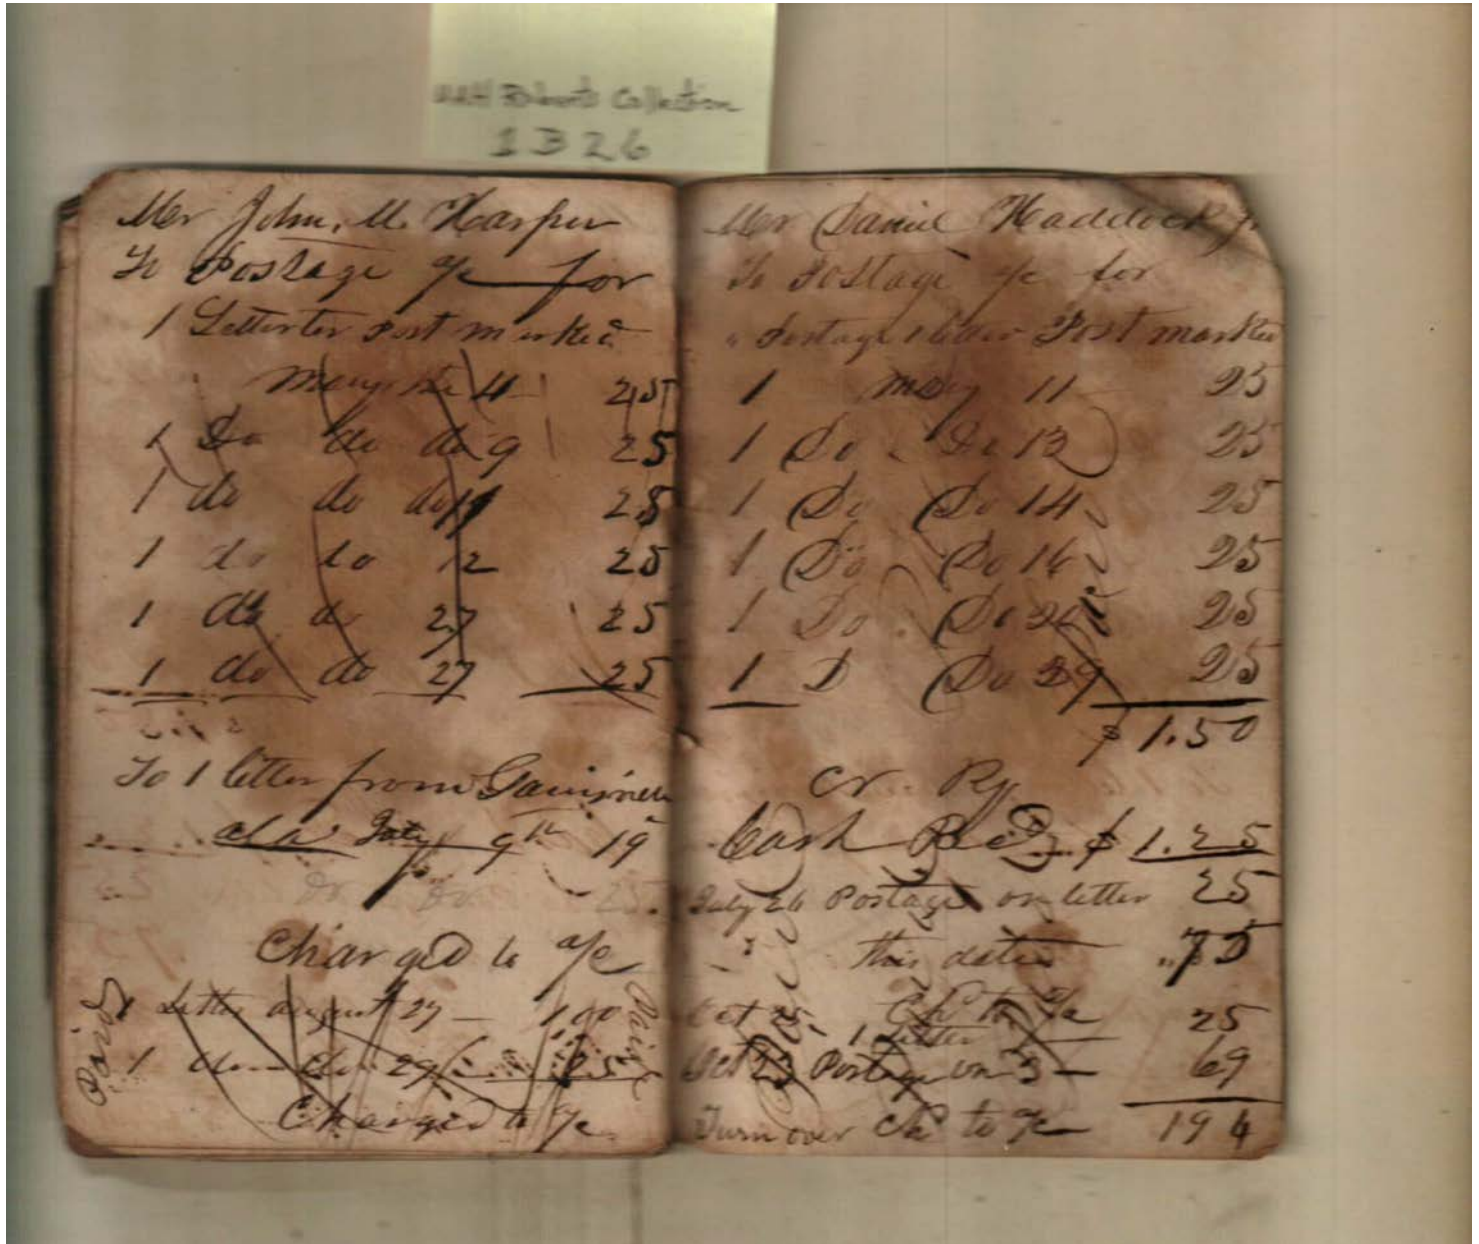 Roberts Collection
1326
Mr John. M. Harper
To Postage a/c for
1 Letter Post marked
May the 4 25
1 Do do do 9 25
1 do do do 11 25
1 do do 12 25
1 do do 27 25
1 do do 27 25
To 1 letter from
July 9th 19
25
Charged to a/c
Paid
1 Letter august 27 — 100
Paid
1 do 29 25
Charged to a/c
Mr Daniel Haddock Jr
To Postage a/c for
" Postage Post marked
1 May 11 25
1 Do Do 13 25
1 Do Do 14 25
1 Do Do 16 25
1 Do Do 26 25
1 D Do 29 25
$ 1.50
Cr By
Cash Recd $ 1.25
July 26 Postage on letter 25
this date 75
Ch to a/c
Oct 1 Letter 25
Oct 23 Postage on 3 — 69
Turn over Ch to a/c 194